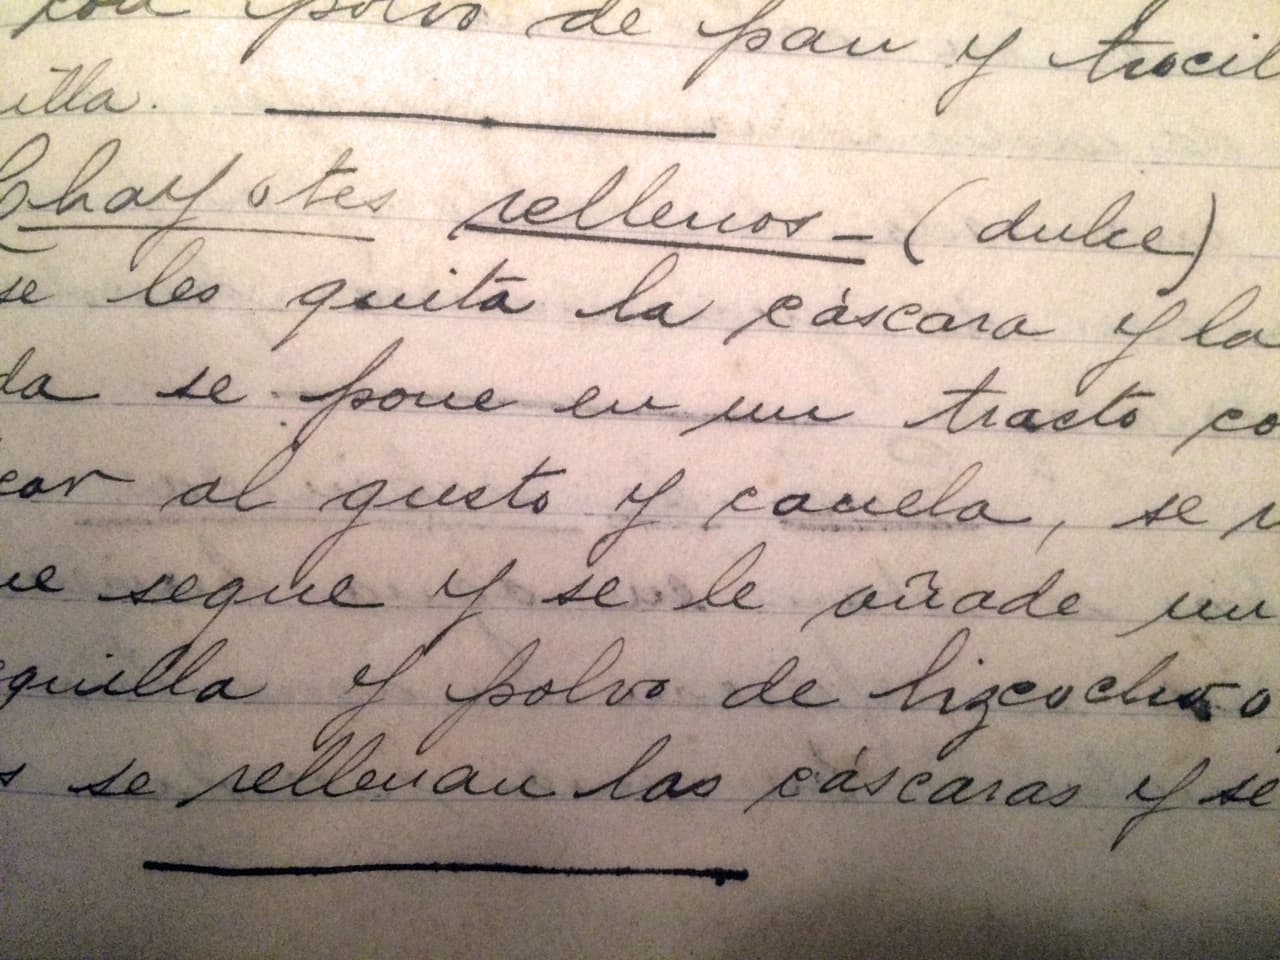 con polvo de pan y trocil
illa.
Chayotes rellenos - (dulce)
se les quita la cáscara y la
da se pone en un tracto co
car al gusto y canela, se
ue seque y se le añade un
quilla y polvo de bizcocho o
s se rellenan las cáscaras y se